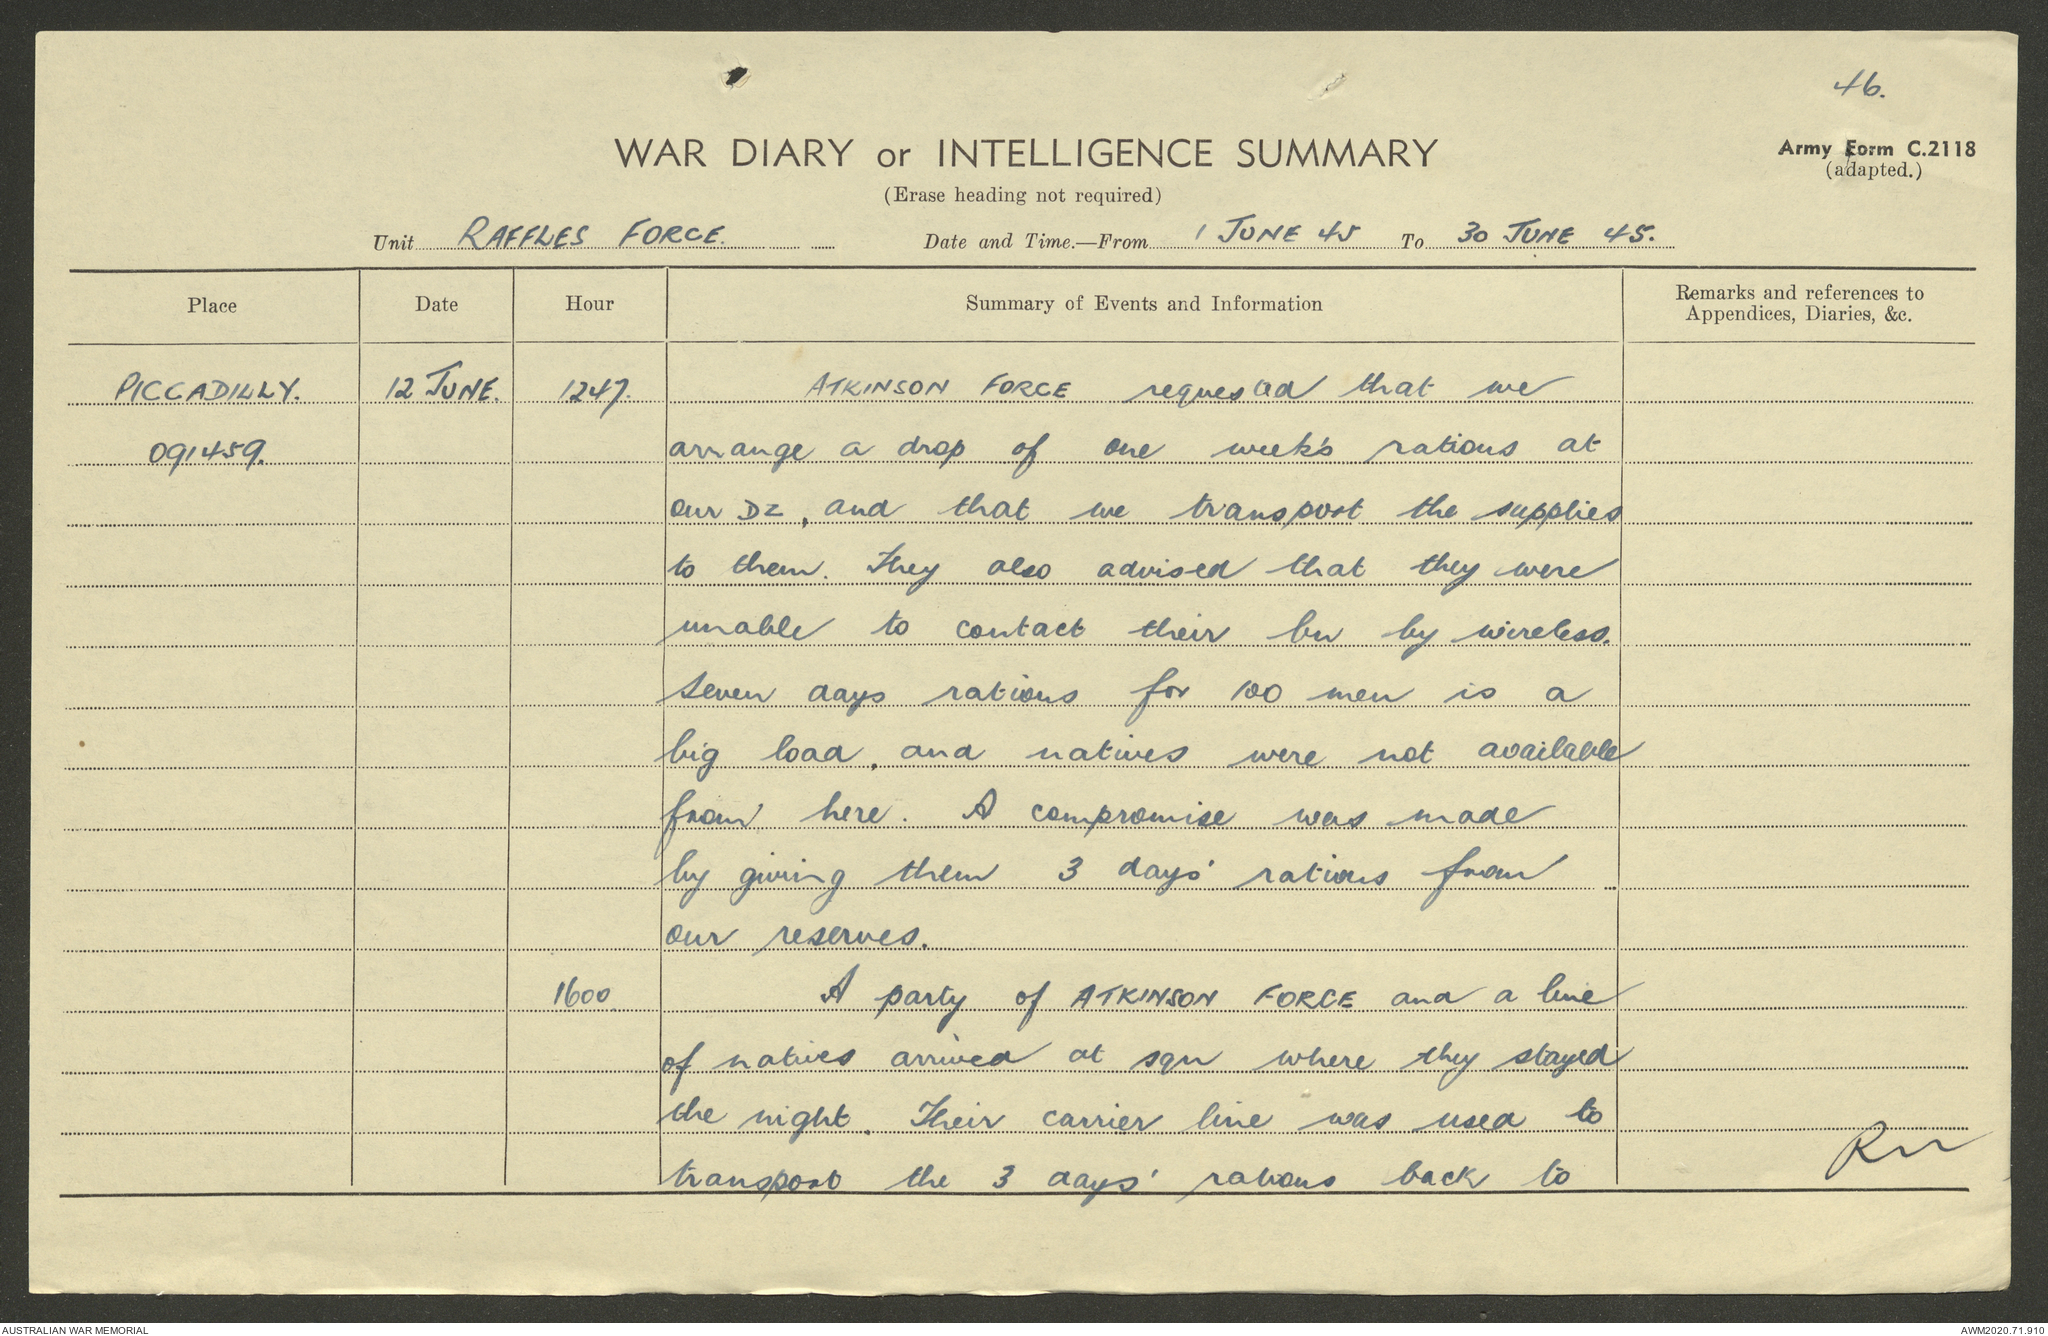 46.
WAR DIARY or INTELLIGENCE SUMMARY
Army Form C.2118
(adapted.)
(Erase heading not required)
Unit RAFFLES FORCE. Date and Time.—From 1 JUNE 45 To 30 JUNE 45.
Place Date Hour Summary of Events and Information Remarks and references to
Appendices, Diaries, &c.
PICCADILLY. 12 JUNE. 1247. ATKINSON FORCE requested that we
091459. arrange a drop of one week's rations at
our DZ, and that we transport the supplies
to them. They also advised that they were
unable to contact their bn by wireless.
Seven days rations for 100 men is a
big load, and natives were not available
from here. A compromise was made
by giving them 3 days' rations from
our reserves.
1600. A party of ATKINSON FORCE and a line
of natives arrived at sqn where they stayed
the night. Their carrier line was used to
transport the 3 days' rations back to
AUSTRALIAN WAR MEMORIAL
AWM2020.71.910